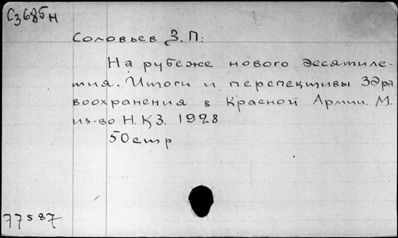 С3685н
Соловьев З.П.:
На рубеже нового десятиле-
тия. Итоги и перспективы Здра
воохранения в Красной Армии. М.
из-во Н.КЗ. 1928
50стр
77587